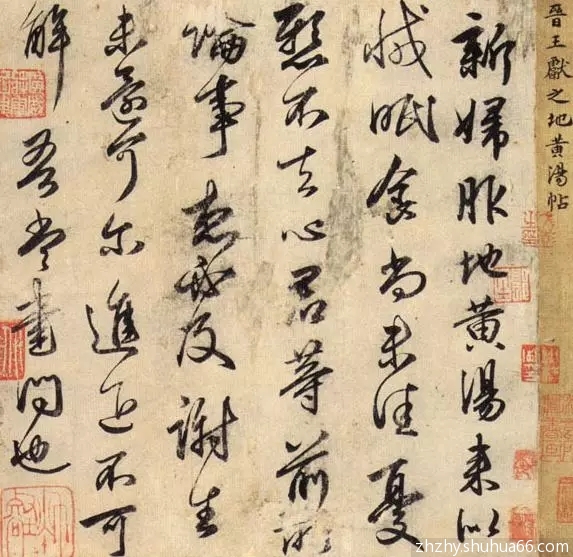 晉王獻之地黄湯帖
新婦服地黄湯來似
減眠食尚未佳憂
懸不去心君等前所
論事想必及謝生
未還可尔進退不可
解吾當書問也
zhzhyshuhua66.com